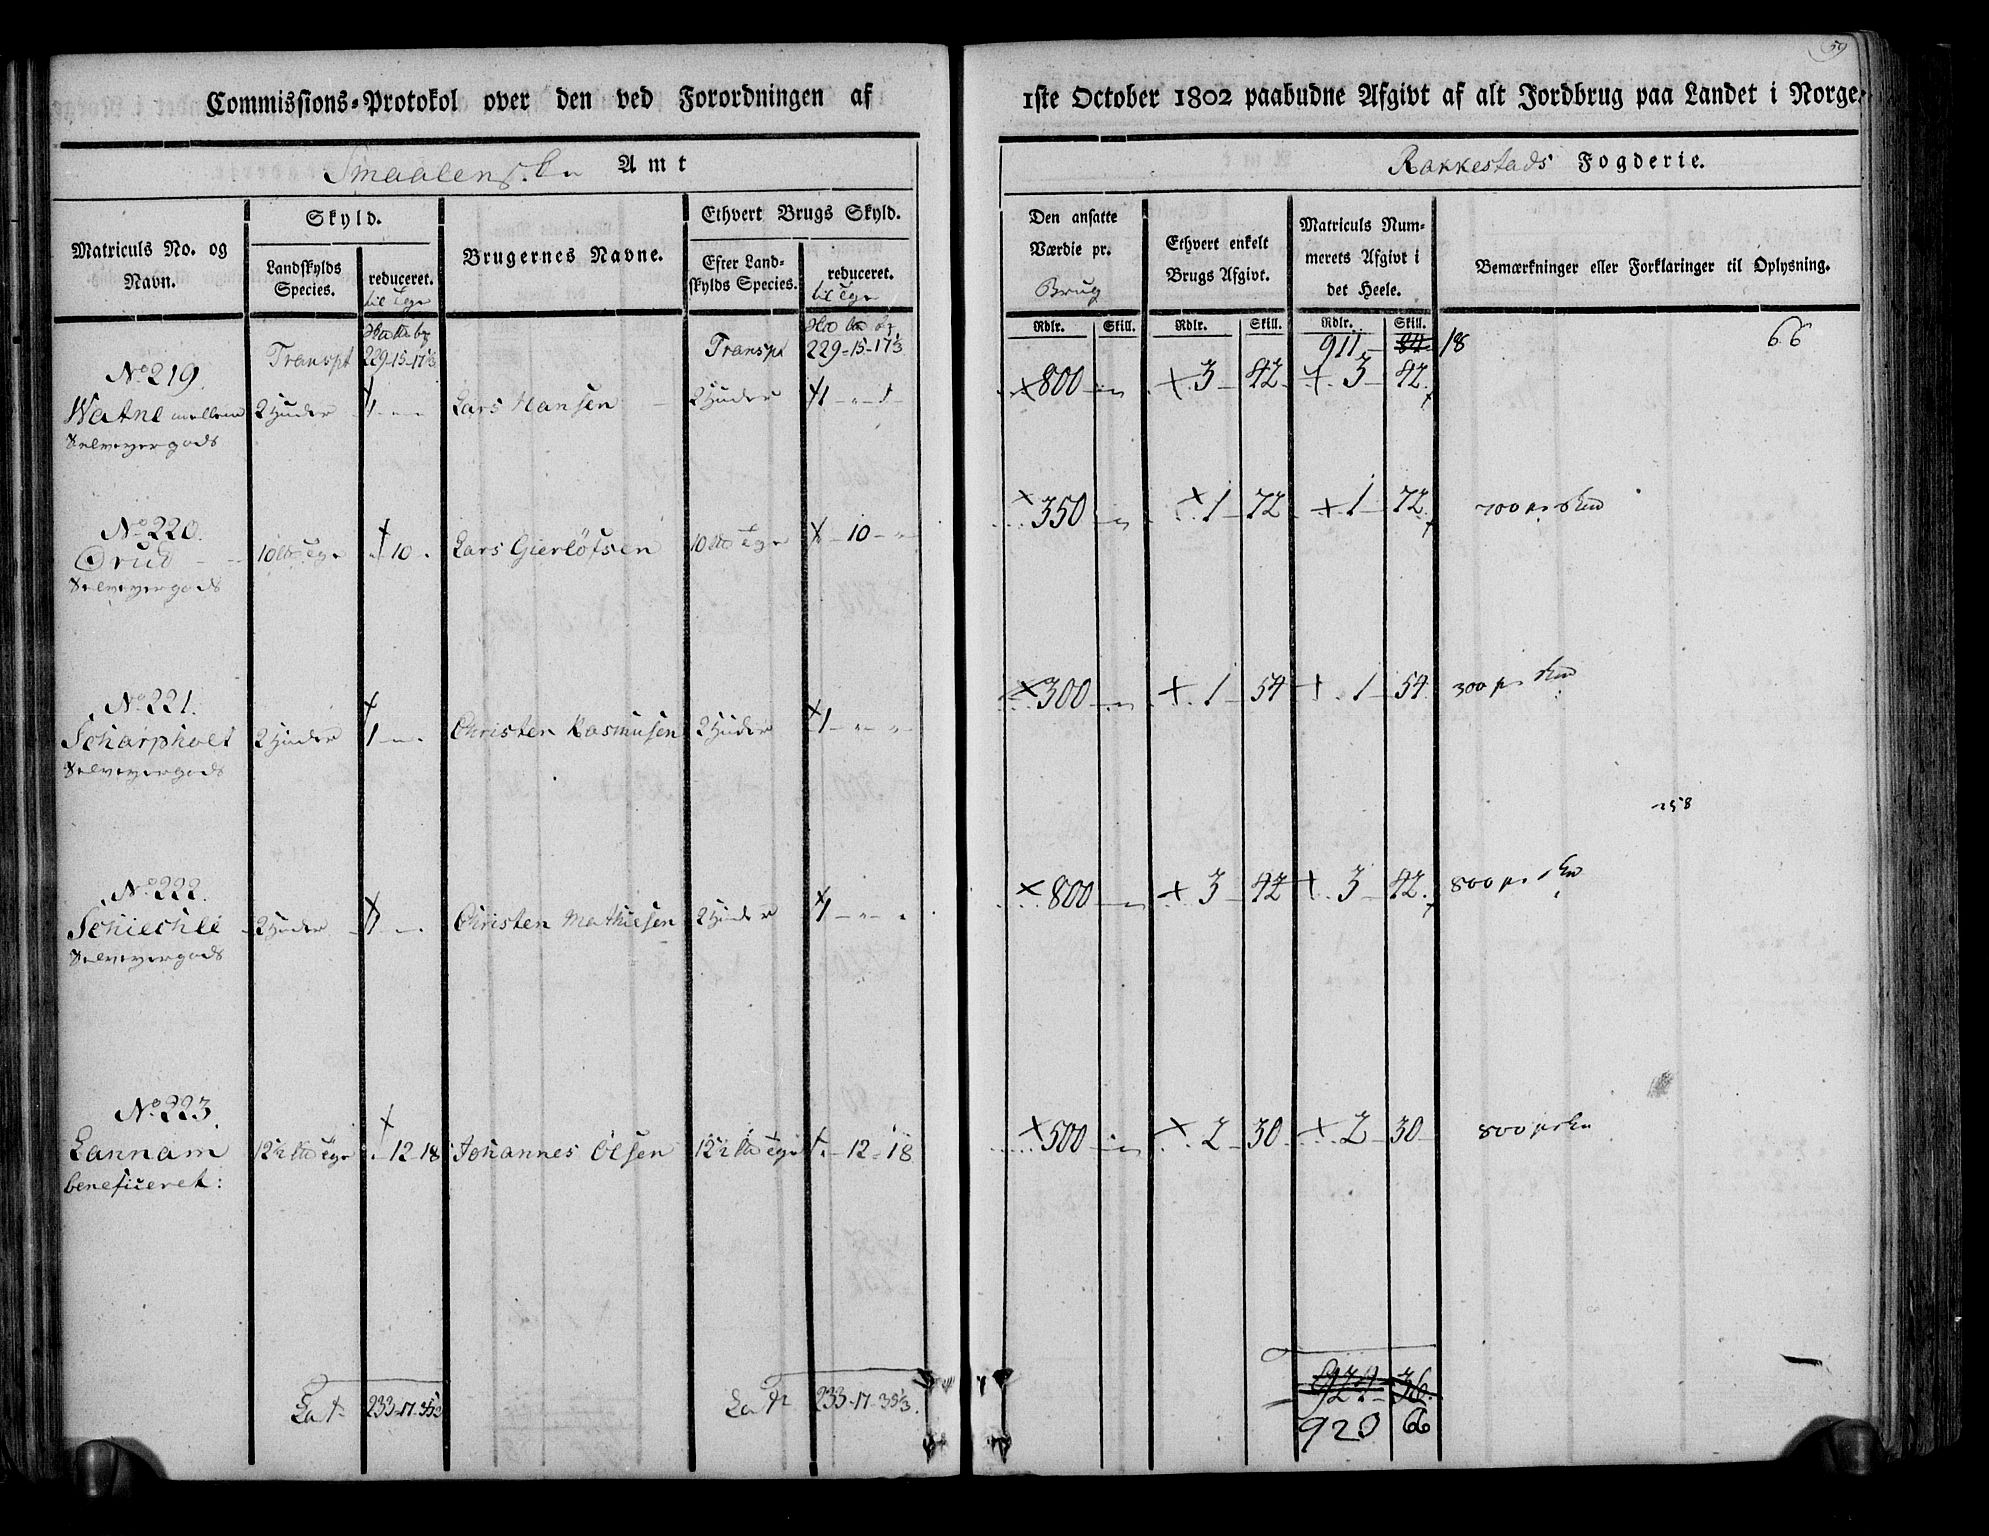 59
Commissions-Protokol over den ved Forordningen af 1ste October 1802 paabudne Afgivt af alt Jordbrug paa Landet i Norge.
Smaalenske Amt
Rakkestads Fogderie.
Matriculs No. og Navn.
Skyld.
Landskylds Species.
reduceret.
til Tge
Brugernes Navne.
Ethvert Brugs Skyld.
Efter Landskylds Species.
reduceret.
til Tge
Den ansatte Værdie pr.
Brug
Ethvert enkelt Brugs Afgivt.
Matriculs Nummerets Afgivt i det Heele.
Bemærkninger eller Forklaringer til Oplysning.
Rdlr. Skill. Rdlr. Skill. Rdlr. Skill.
Transpt 229-15-17⅓ Transpt 229-15-17⅓ 911 - 84 18 66
No 219.
Watne mellem 2 Huder 1 - - Lars Hansen 2 Huder 1 - - 800 - 3 - 42 3 - 42
Selveyergods
No 220.
Ørud 10 Tge 10 Lars Gierløfsen 10 Tge - 10 - 350 - 1 - 72 1 - 72 700
Selveyergods
No 221.
Scharpholt 2 Huder 1 - - Christen Rasmusen 2 Huder 1 - - 300 - 1 - 54 1 - 54 300
Selveyergods
258
No 222
Schiechle 2 Huder 1 - - Christen Mathiesen 2 Huder 1 - - 800 - 3 - 42 3 - 42 800
Selveyergods
No 223.
Lannam 12½ Tge - 12 - 18 Johannes Olsen 12½ Tge - 12 - 18 500 - 2 - 30 2 - 30 800
beneficeret:
Lat 233-17-35⅓ Lat 233-17-35⅓ 36
923 66